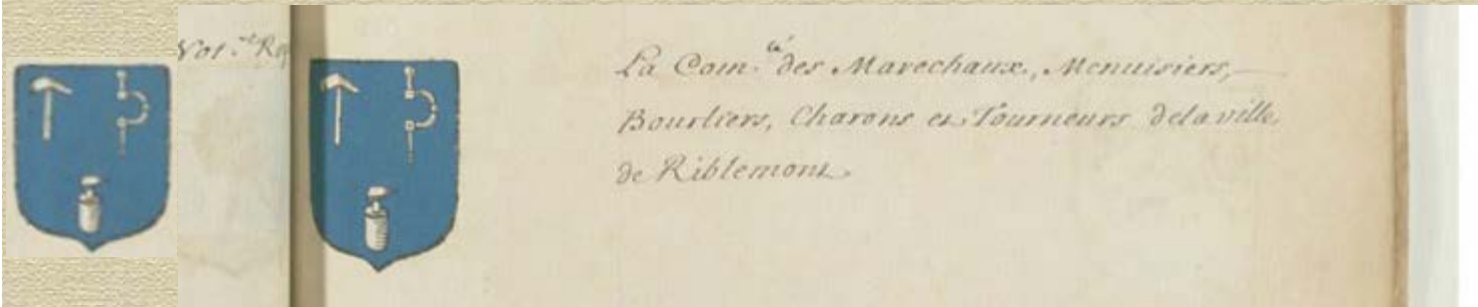 La Com.^té des Marechaux, Menuisiers,
Bourliers, Charons et Tourneurs de la ville,
de Riblemont